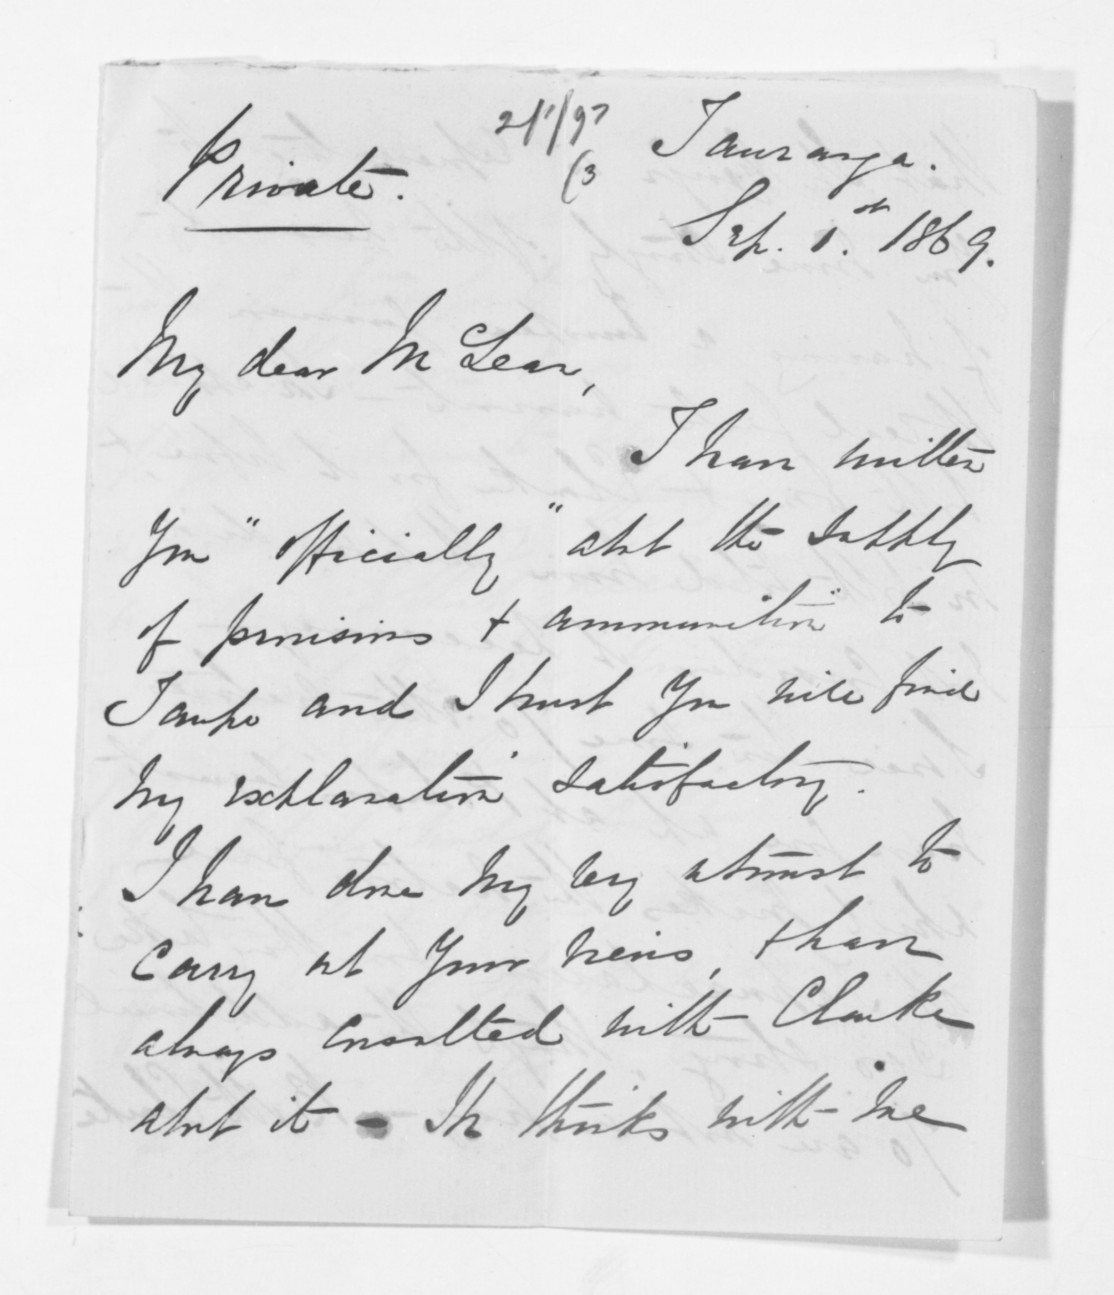 Private.
Tauranga.
Sep. 1st 1869.
My dear McLean,
I have written
you "officially" abt the supply
of provisions & ammunition to
Taupo and I trust you will find
my explanation satisfactory.
I have done my very utmost to
carry out your views, & have
always consulted with Clarke
abt it - He thinks with me